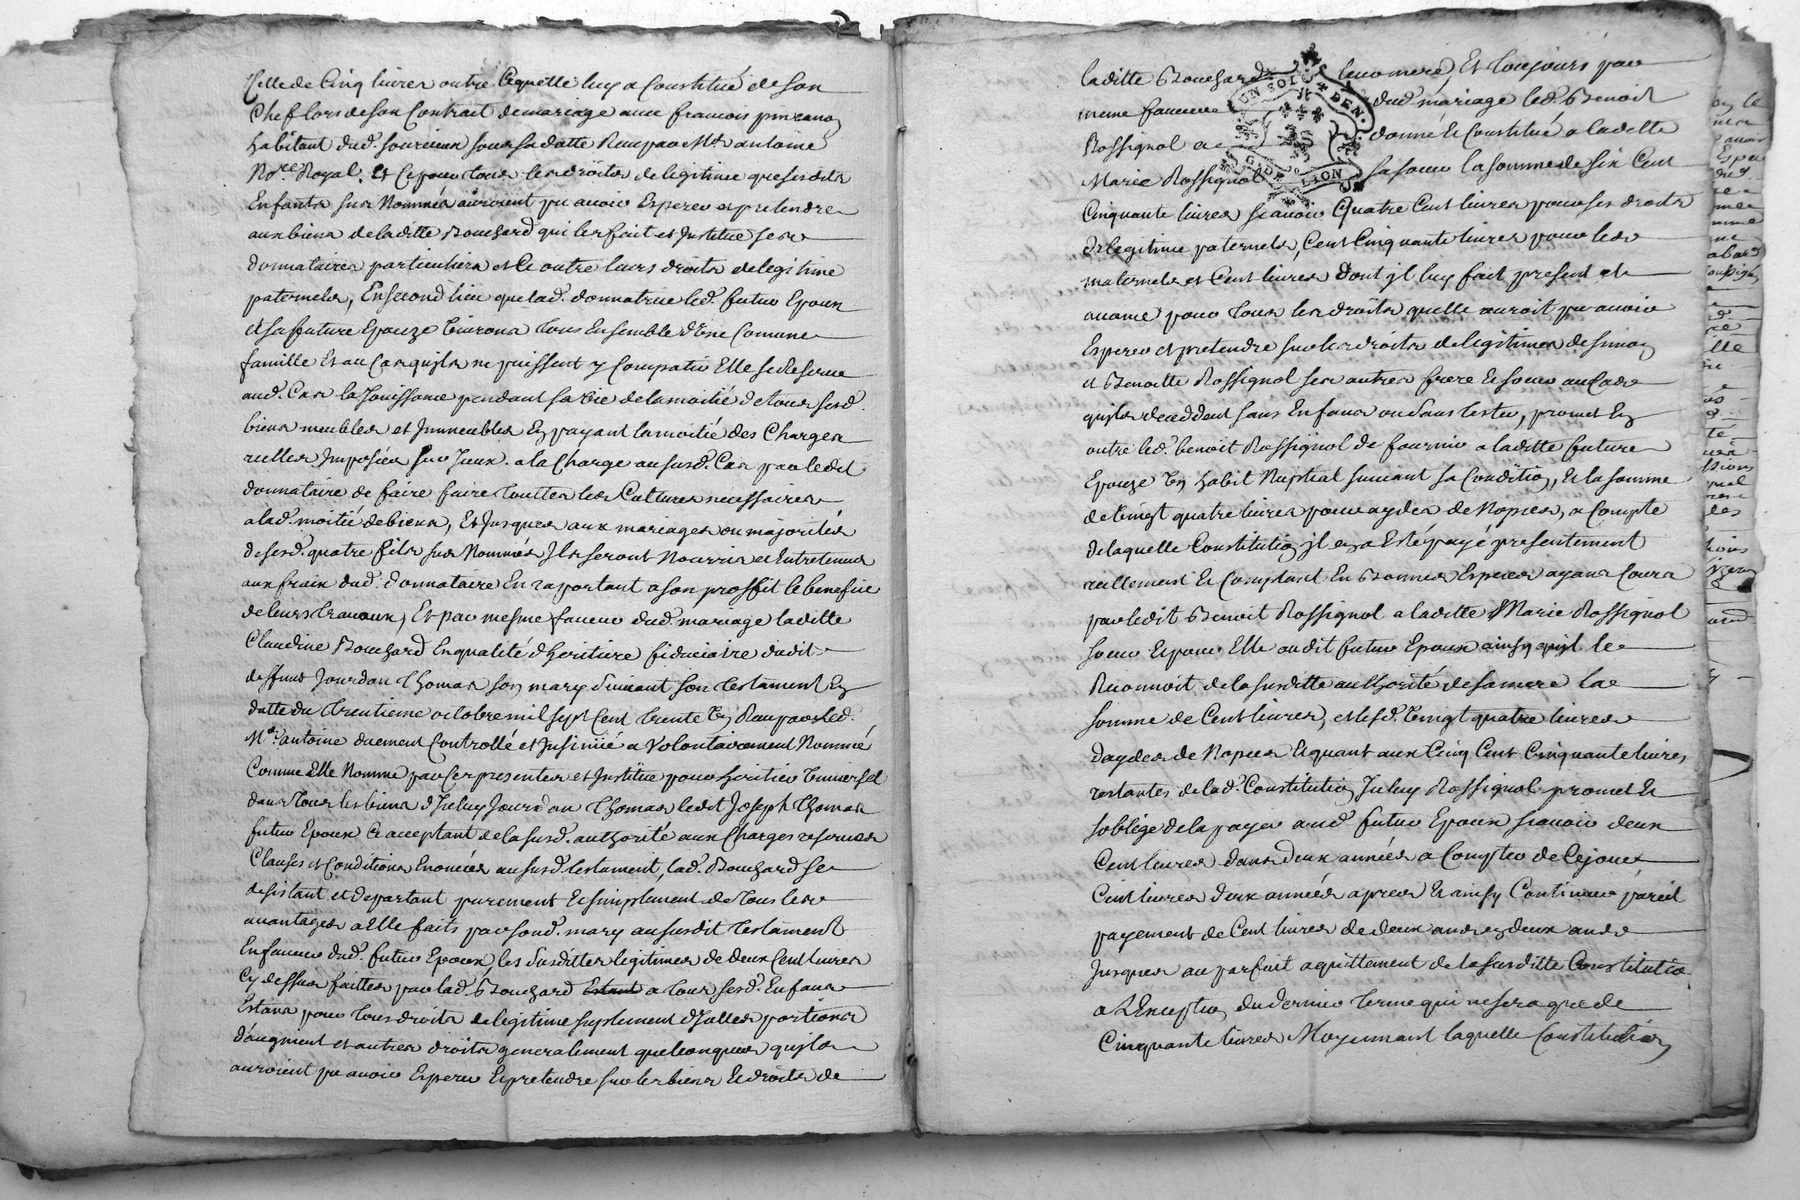 Celle de Cinq livres outre Cequelle luy a Constitué de son
Chef lors de son Contrat de mariage avec francois
habitant dud. sourcieux sous sa datte Receu par Me antoine
Nore Royal. et Ce pour tous les droits de legitime que sesdits
Enfants sus Nommés auroient pu avoir Esperer et pretendre
aux biens de laditte Bouchard qui les fait et Institue ses
donnataires particuliers et Ce outre leurs droits de legitime
paternels, En second lieu que lad. donnatrice led. futur Epoux
et sa future Epouze vivrons tous Ensemble d'une Comune
famille Et au Cas quils ne puissent y Compatir Elle se Reserve
aud. Cas la Jouissance pendant sa vie de la moitié de tous sesd.
biens meubles et Immeubles En payant la moitié des Charges
reelles Imposées sur Iceux. a la Charge au susd. Cas par ledit
donnataire de faire faire touttes les Cultures necessaires
a lad. moitié de biens, Et Jusques aux mariages ou majorités
de sesd. quatre fils sus Nommés Ils seront Nourris et Entretenus
aux fraix dud. donnataire En raportant a son proffit le benefice
de leurs travaux, Et par mesme faveur dud. mariage laditte
Claudine Bouchard En qualité d'heritiere fiduciaire dudit
deffunt Jourdan Thomas son mary suivant son testament En
datte du trentieme octobre mil sept Cent trente Un Receu par led.
Me antoine duement Controllé et Insinüé a volontairement Nommé
Comme Elle Nomme par Ces presentes et Institüe pour heritier universel
dans tous les biens d'Iceluy Jourdan Thomas ledit Joseph Thomas
futur Epoux Ce acceptant de la susd. authorité aux Charges reserves
Clauses et Conditions Enoncées au susd. testament, lad. Bouchard se
desistant et departant purement Et simplement de tous les
avantages a Elle faits par sond. mary au susdit testament
En faveur dud. futur Epoux, les susdittes legitimes de deux Cent livres
Cy dessus faittes par lad. Bouchard a tous sesd. Enfans
Estans pour tous droits de legitime suplement d'Icelles portions
d'augment et autres droits generalement quelconques quils
auroient pu avoir Esperer Et pretendre sur les biens Et droits de
laditte Bouchard leur mere, Et toujours par
meme faveur dud. mariage led. Benoit
Rossignol a donné et Constitué a laditte
Marie Rossignol sa soeur la somme de six Cent
UN SOL DEN.
G. DE LION
Cinquante livres scavoir Quatre Cent livres pour ses droits
de legitime paternels, Cent Cinquante livres pour les
maternels et Cent livres dont il luy fait present et
avance pour tous les droits quelle auroit pu avoir
Esperer et pretendre sur les droits de legitimes de simon
et Benoitte Rossignol ses autres frere Et soeur au Cas
quils decedent sans Enfans ou sans tester, promet En
outre led. benoit Rossignol de fournir a laditte future
Epouze Un habit Nuptial suivant sa Condition, Et la somme
de vingt quatre livres pour ayder de Nopces, a Compte
de laquelle Constitution il en a Esté payé presentement
reellement Et Comptant En Bonnes Especes ayans Cours
par ledit Benoit Rossignol a laditte Marie Rossignol
soeur Et par Elle audit futur Epoux ainsy quil le
Reconnoit de la susditte authorité de sa mere la
somme de Cent livres, et lesd. vingt quatre livres
dayder de Nopces Et quant aux Cinq Cent Cinquante livres
restantes de lad. Constitution Iceluy Rossignol promet Et
soblige de la payer aud. futur Epoux scavoir deux
Cent livres dans deux années a Compter de Cejour
Cent livres deux années apres Et ainsy Continuer pareil
payement de Cent livres de deux ans en deux ans
Jusques au parfait aquittement de la susditte Constitution
a l'Exception du dernier terme qui ne sera que de
Cinquante livres Moyennant laquelle Constitution